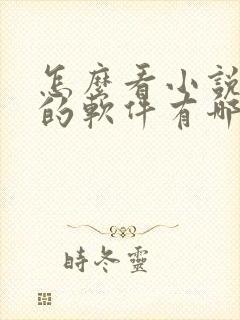 怎麼看小說
的軟件有哪
時冬靈